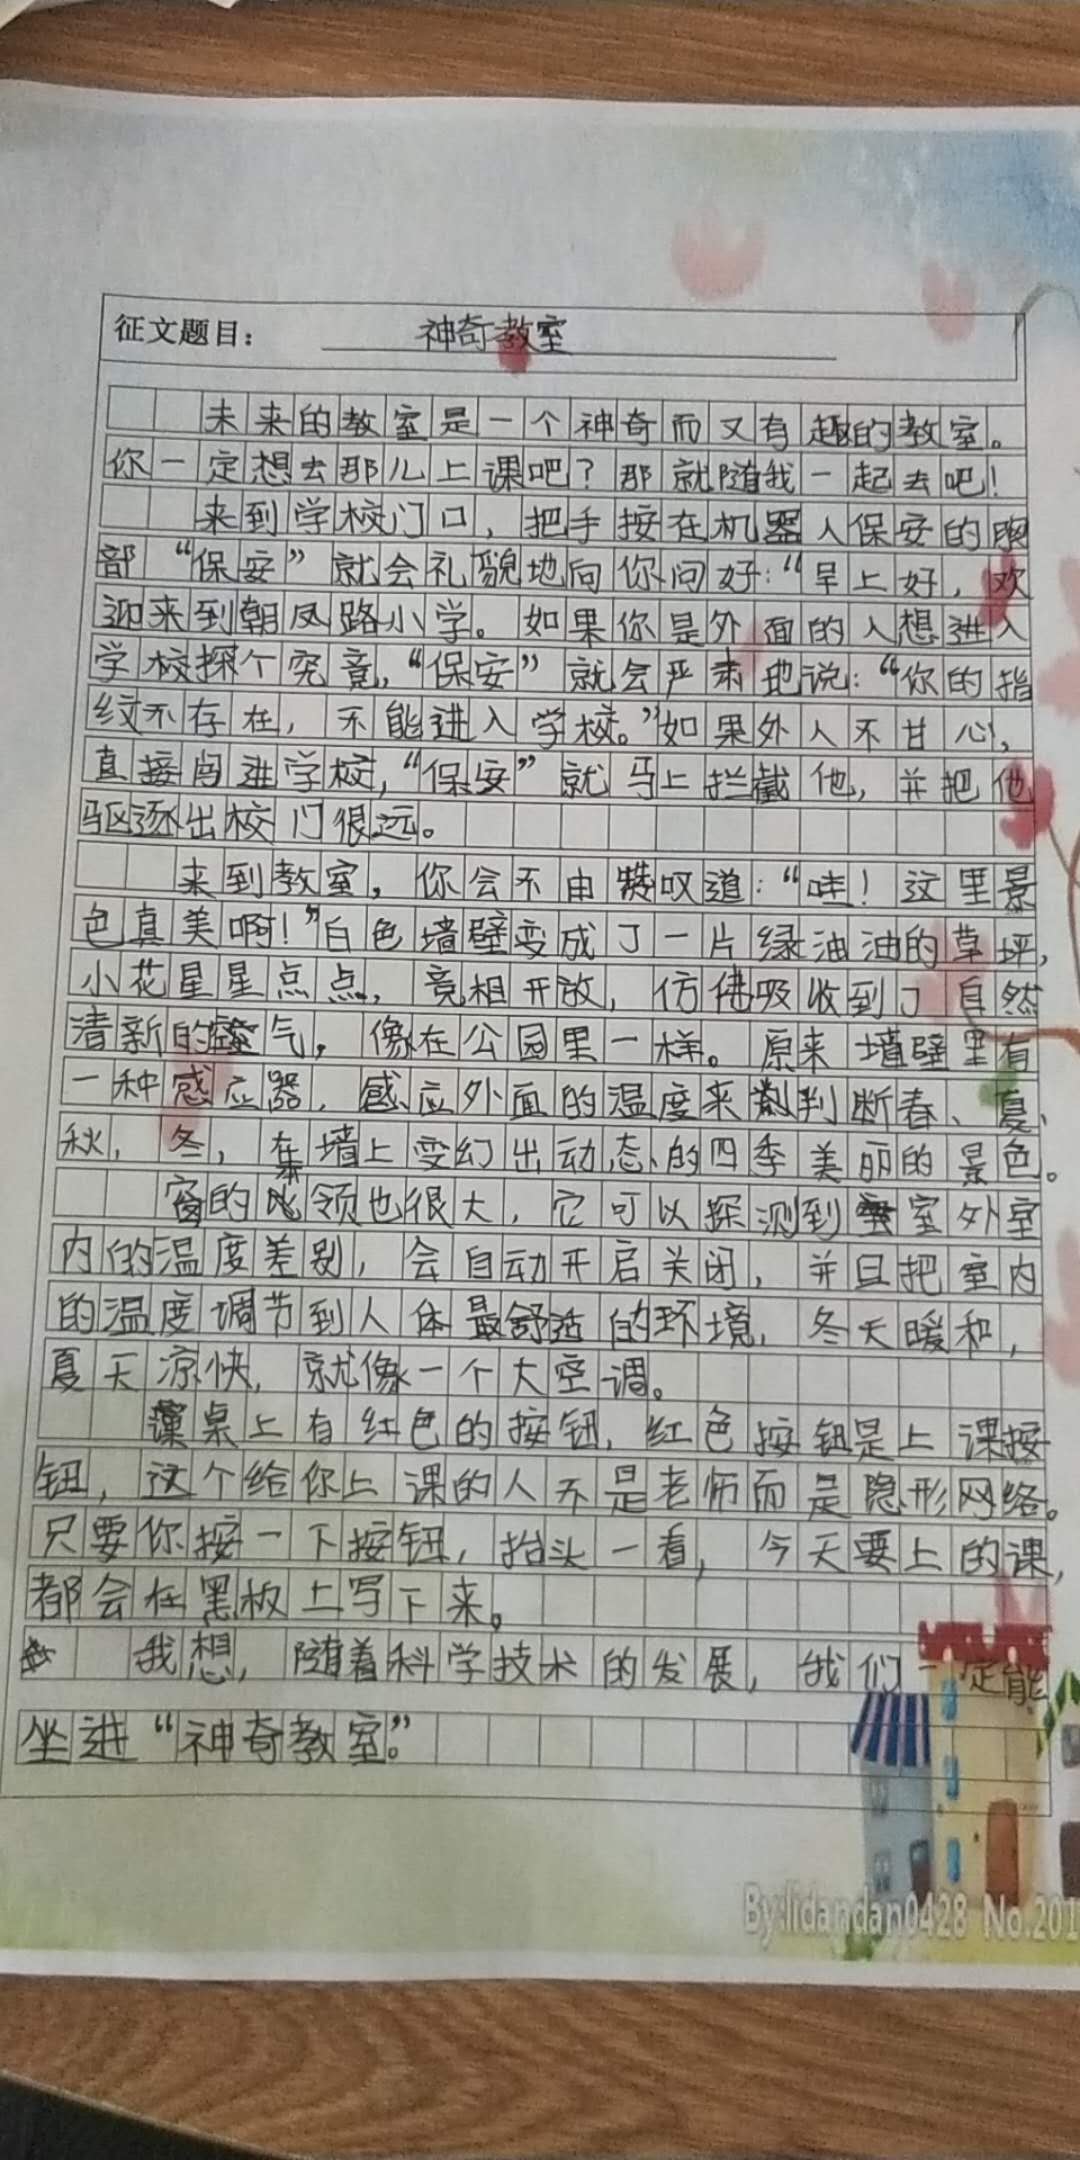 征文题目： 神奇教室
未来的教室是一个神奇而又有趣的教室。
你一定想去那儿上课吧？那就随我一起去吧！
来到学校门口，把手按在机器人保安的胸
部“保安”就会礼貌地向你问好：“早上好，欢
迎来到朝凤路小学。如果你是外面的人想进入
学校探个究竟，“保安”就会严肃地说：“你的指
纹不存在，不能进入学校。”如果外人不甘心，
直接闯进学校，“保安”就马上拦截他，并把他
驱逐出校门很远。
来到教室，你会不由赞叹道：“哇！这里景
色真美啊！”白色墙壁变成了一片绿油油的草坪，
小花星星点点，竞相开放，仿佛吸收到了自然
清新的空气，像在公园里一样。原来墙壁里有
一种感应器，感应外面的温度来判断春、夏、
秋，冬，在墙上变幻出动态的四季美丽的景色。
窗的本领也很大，它可以探测到室外室
内的温度差别，会自动开启关闭，并且把室内
的温度调节到人体最舒适的环境，冬天暖和，
夏天凉快，就像一个大空调。
课桌上有红色的按钮，红色按钮是上课按
钮，这个给你上课的人不是老师而是隐形网络。
只要你按一下按钮，抬头一看，今天要上的课，
都会在黑板上写下来。
我想，随着科学技术的发展，我们一定能
坐进“神奇教室”。
By:lidandan0428 No.201